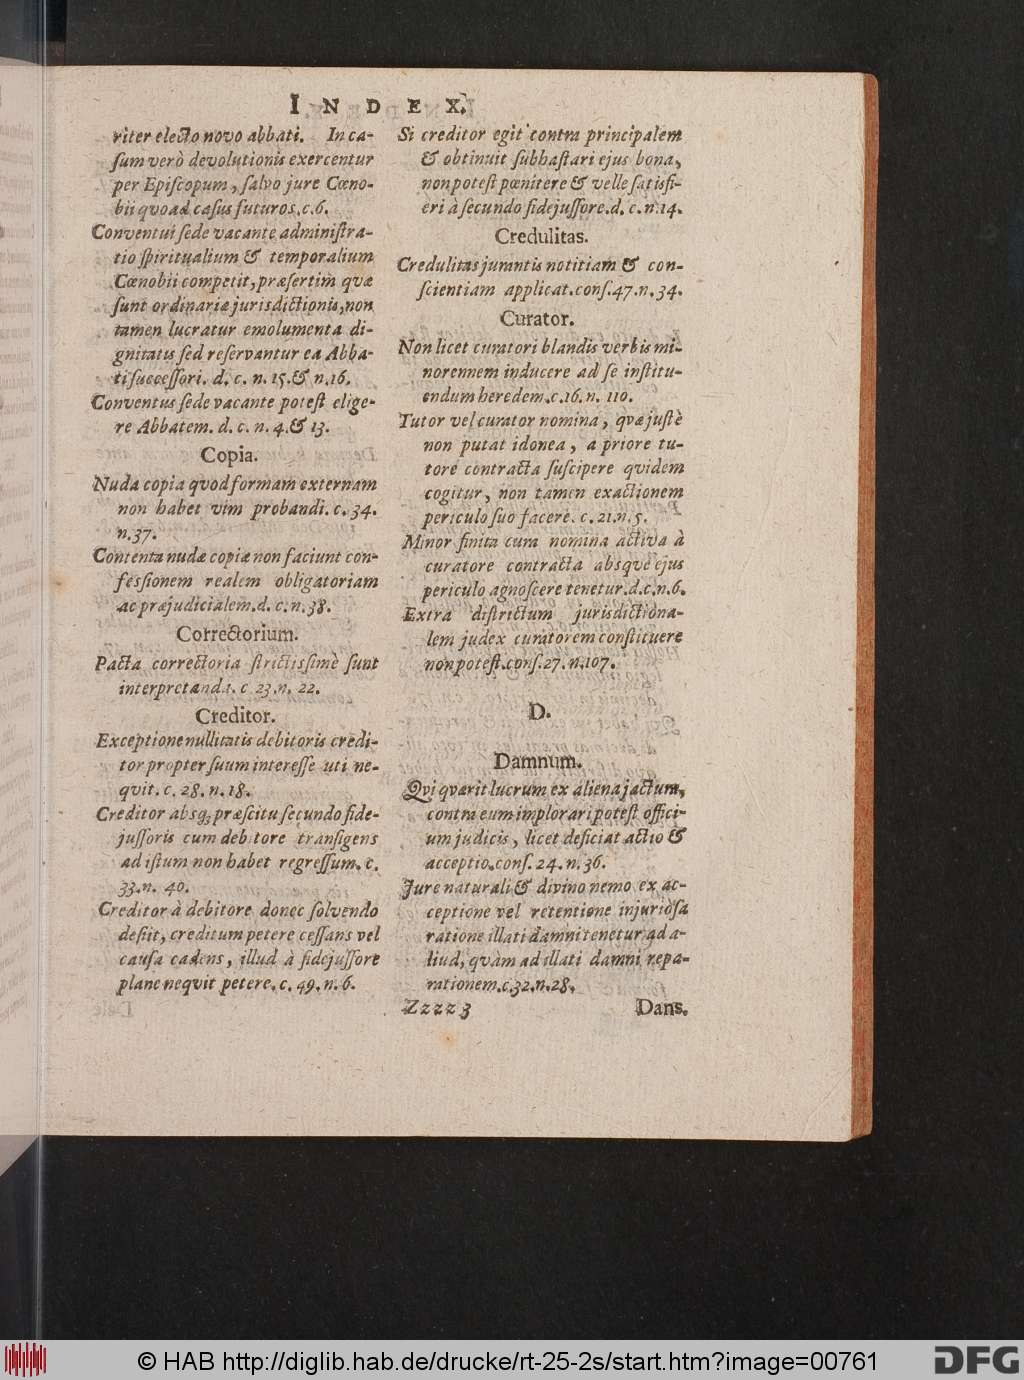 INDEX.
riter electo novo abbati. In ca-
sum verò devolutionis exercentur
per Episcopum, salvo jure Cœno-
bii quoad casus futuros.c.6.
Conventui sede vacante administra-
tio spiritualium & temporalium
Cœnobii competit, præsertim quæ
sunt ordinariæ jurisdictionis, non
tamen lucratur emolumenta di-
gnitatis sed reservantur ea Abba-
ti successori. d. c. n. 15. & n. 16.
Conventus sede vacante potest elige-
re Abbatem. d. c. n. 4. & 13.
Copia.
Nuda copia qvod formam externam
non habet vim probandi. c. 34.
n. 37.
Contenta nudæ copiæ non faciunt con-
fessionem realem obligatoriam
ac præjudicialem. d. c. n. 38.
Correctorium.
Pacta correctoria strictissimè sunt
interpretanda. c 23. n. 22.
Creditor.
Exceptione nullitatis debitoris credi-
tor propter suum interesse uti ne-
qvit. c. 28. n. 18.
Creditor absq; præscitu secundo fide-
jussoris cum debitore transigens
ad istum non habet regressum. c.
33. n. 40.
Creditor à debitore donec solvendo
desiit, creditum petere cessans vel
causa cadens, illud à fidejussore
plane neqvit petere. c. 49. n. 6.
Si creditor egit contra principalem
& obtinuit subhastari ejus bona,
non potest pœnitere & velle satisfi-
eri à secundo fidejussore. d. c. n. 14.
Credulitas.
Credulitas jurantis notitiam & con-
scientiam applicat. cons. 47. n. 34.
Curator.
Non licet curatori blandis verbis mi-
norennem inducere ad se institu-
endum heredem. c. 16. n. 110.
Tutor vel curator nomina, qvæ justè
non putat idonea, a priore tu-
tore contracta suscipere qvidem
cogitur, non tamen exactionem
periculo suo facere. c. 21. n. 5.
Minor finita cura nomina activa à
curatore contracta absqve ejus
periculo agnoscere tenetur. d. c. n. 6.
Extra districtum jurisdictiona-
lem judex curatorem constituere
non potest. cons. 27. n. 107.
D.
Damnum.
Qvi qværit lucrum ex aliena jactura,
contra eum implorari potest offici-
um judicis, licet deficiat actio &
acceptio. cons. 24. n. 36.
Jure naturali & divino nemo ex ac-
ceptione vel retentione injuriosa
ratione illati damni tenetur ad a-
liud, qvàm ad illati damni repa-
rationem. c. 32. n. 28.
Zzzz 3
Dans.
© HAB http://diglib.hab.de/drucke/rt-25-2s/start.htm?image=00761
DFG